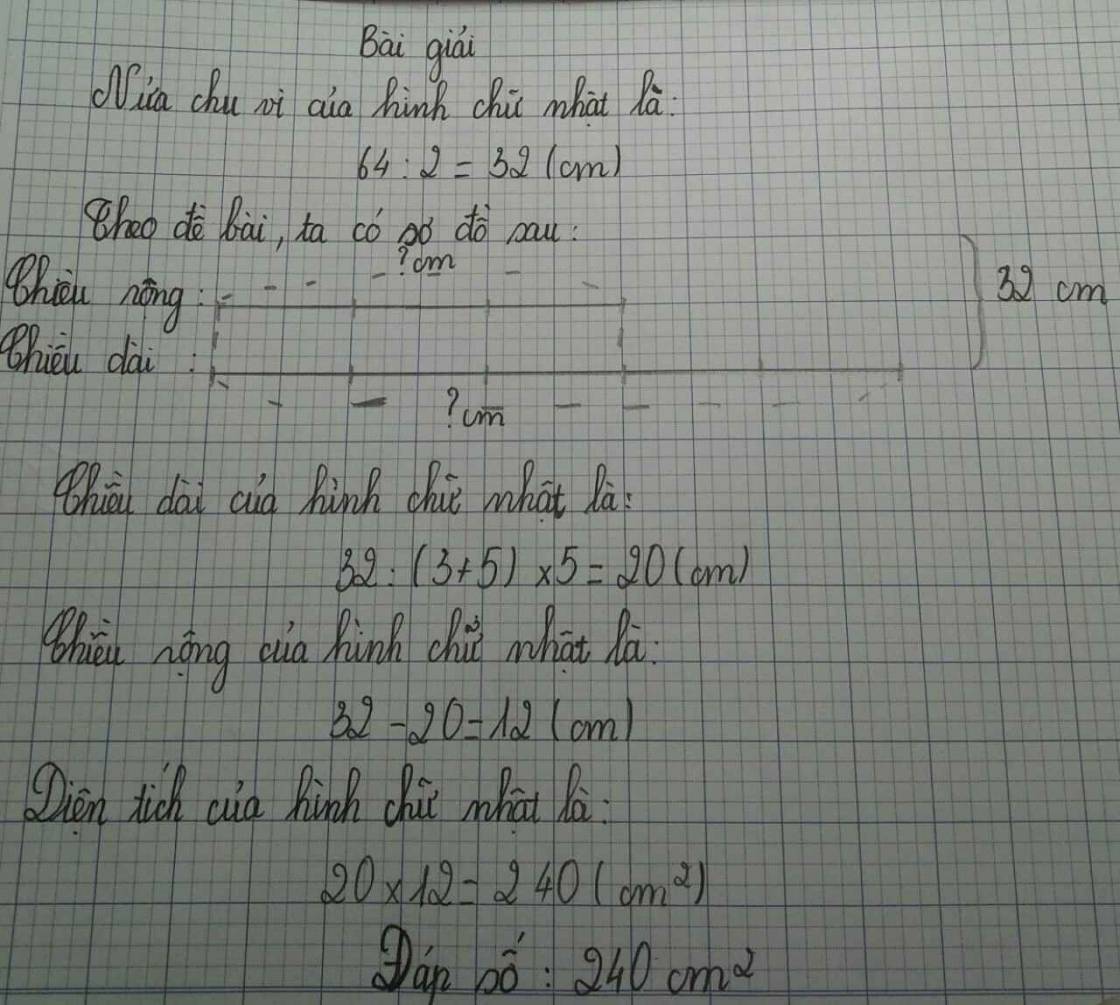 Bài giải
Nửa chu vi của hình chữ nhật là:
64 : 2 = 32 (cm)
Theo đề bài, ta có sơ đồ sau:
? cm
Chiều rộng :
32 cm
Chiều dài :
? cm
Chiều dài của hình chữ nhật là:
32 : (3+5) × 5 = 20 (cm)
Chiều rộng của hình chữ nhật là:
32 - 20 = 12 (cm)
Diện tích của hình chữ nhật là:
20 × 12 = 240 (cm²)
Đáp số : 240 cm²